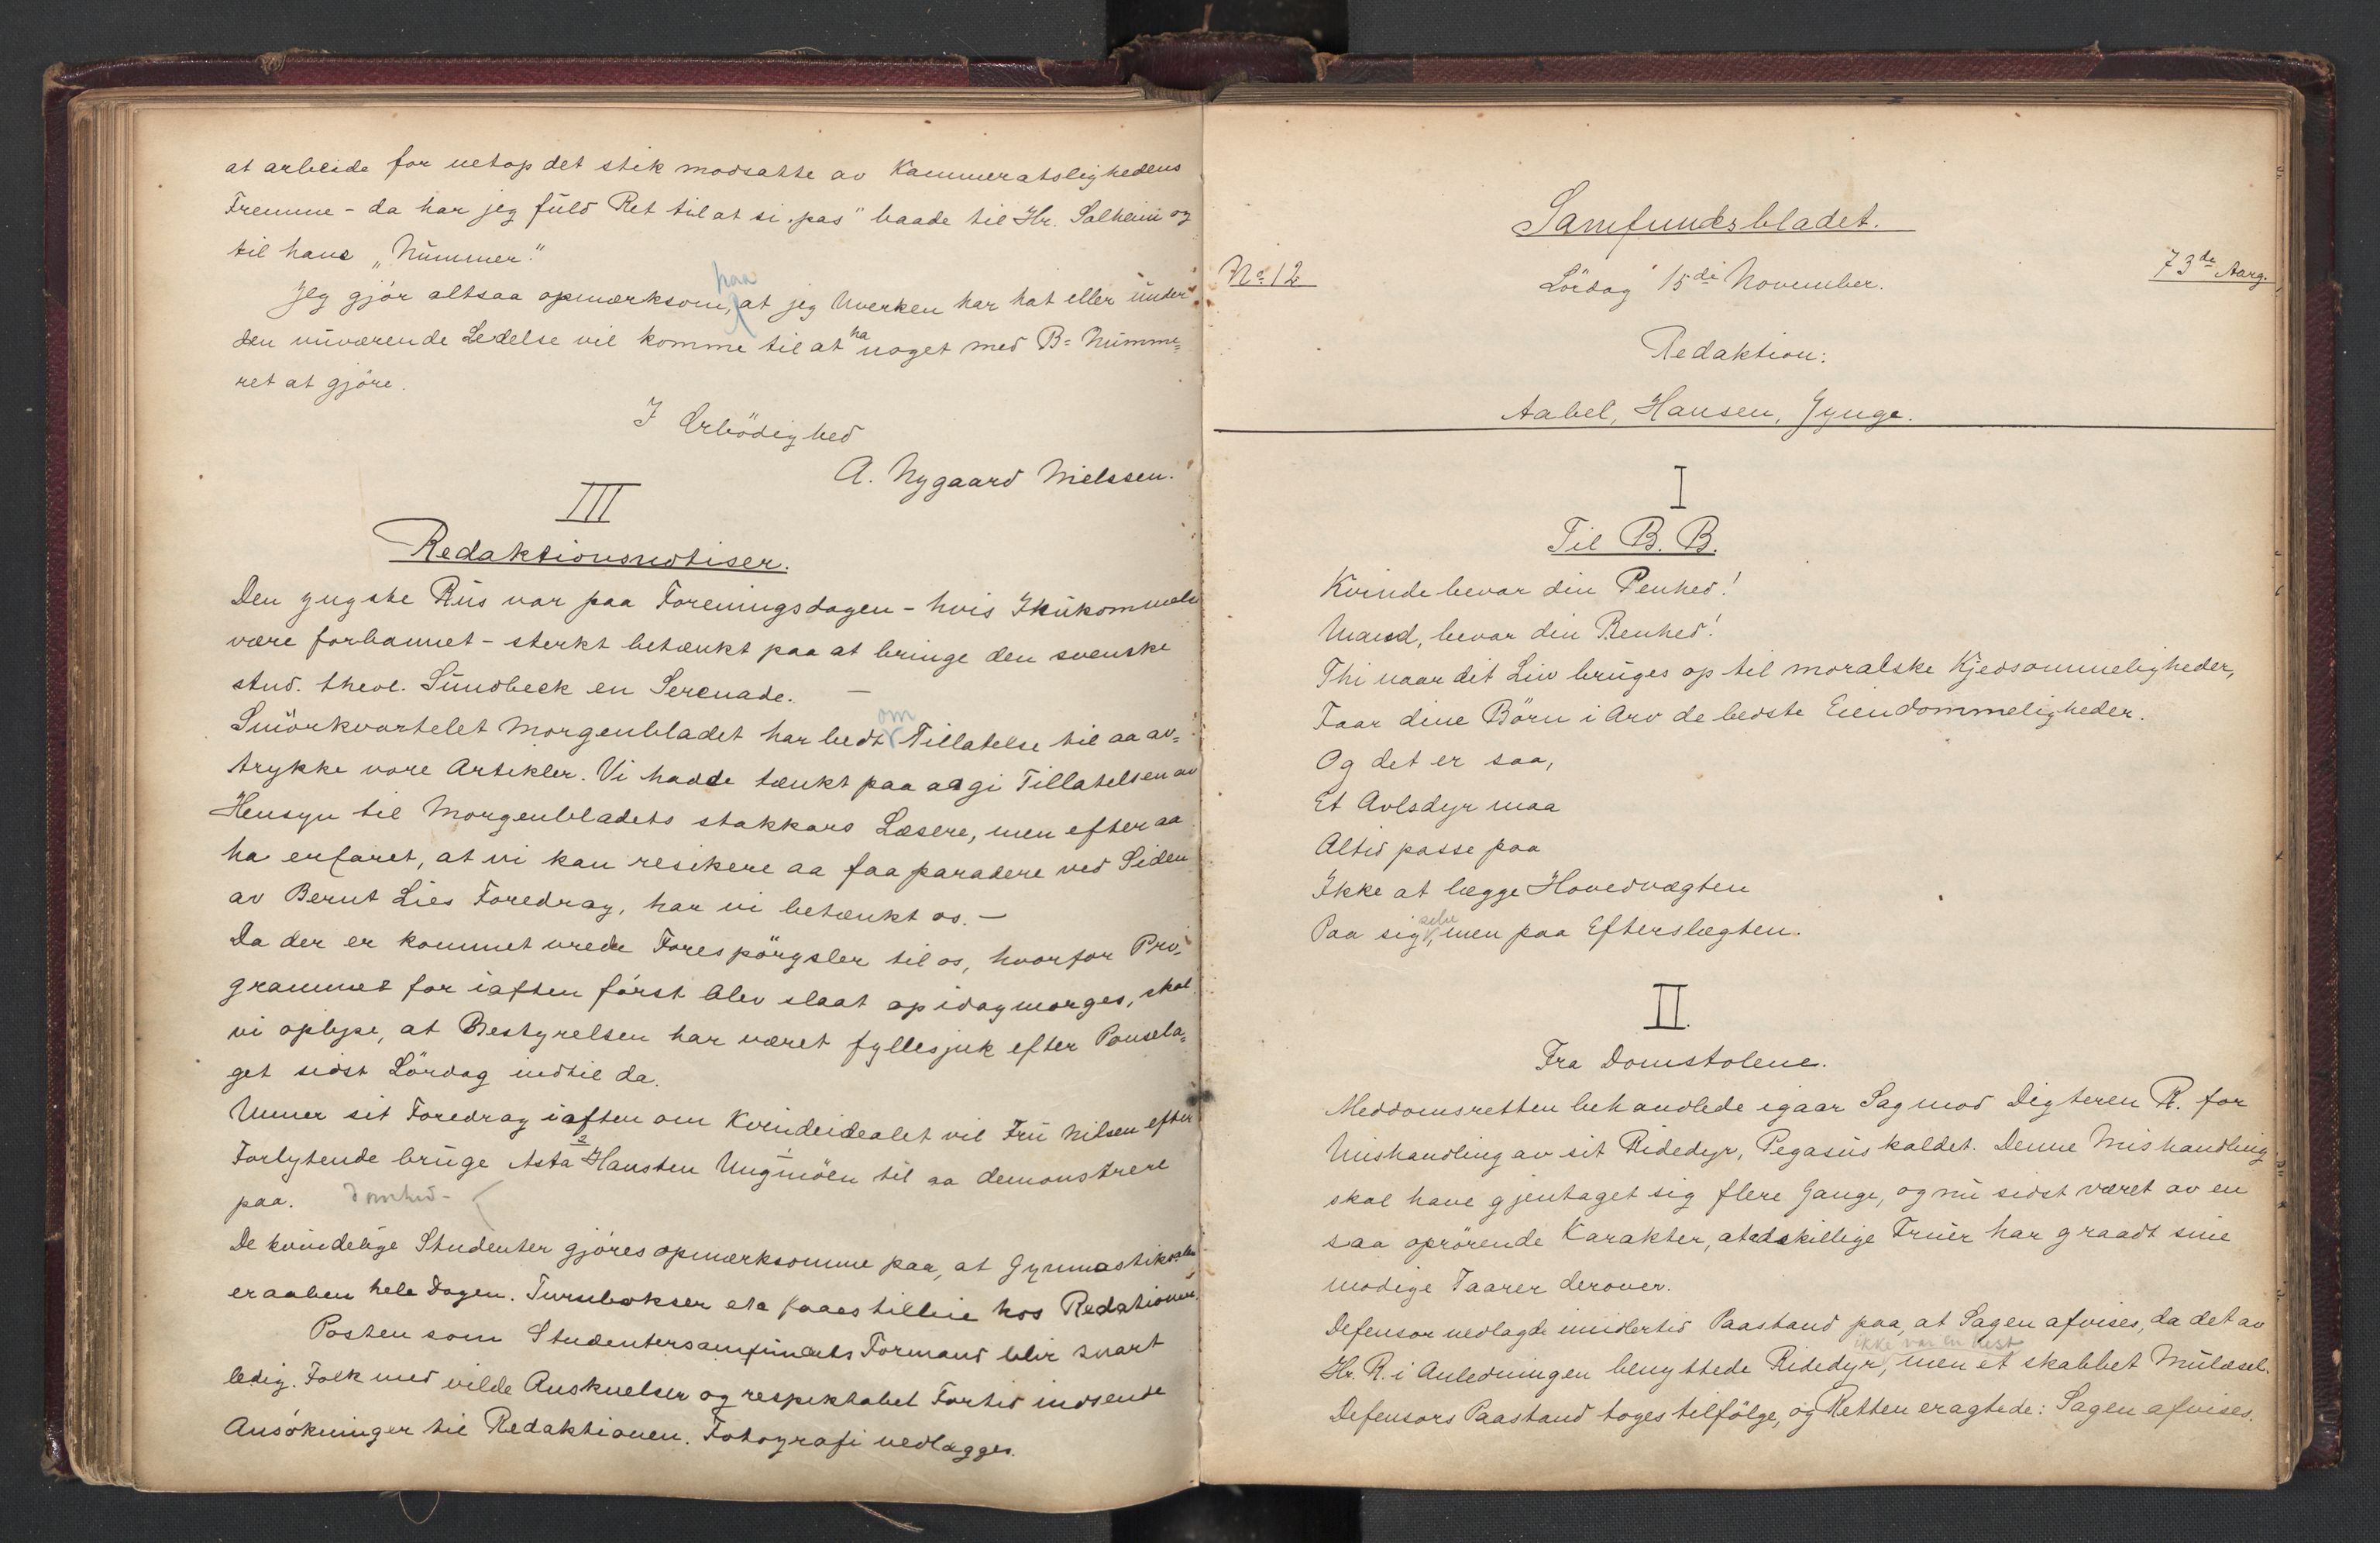 at arbeide for netop det stik modsatte av Kammeratslighedens
Fremme - da har jeg fuld Ret til at si "pas" baade til Hr. Solheim og
til hans "Nummer".
Jeg gjör altsaa opmærksom, paa at jeg hverken har hat eller under
den nuværende Ledelse vil komme til at ha noget med B= Numme=
ret at gjöre.
I Ærbödighed
A. Nygaard Nielssen.
III
Redaktionsnotiser.
Den yngste Rus var paa Foreningsdagen - hvis Ihukommelse
være forbannet - sterkt betænkt paa at bringe den svenske
stud. theol. Sundbeck en Serenade. —
Smörkvartelet Morgenbladet har bedt om Tillatelse til aa av=
trykke vore Artikler. Vi hadde tænkt paa aa gi Tillatelsen av
Hensyn til Morgenbladets stakkars Læsere, men efter aa
ha erfaret, at vi kan resikere aa faa paradere ved Siden
av Bernt Lies Foredrag, har vi betænkt os. —
Da der er kommet vrede Forespörgsler til os, hvorfor Pro=
grammet for iaften först blev slaat op idag morges, skal
vi oplyse, at Bestyrelsen har været fyllesjuk efter Pousela=
get sidst Lördag indtil da.
Under sit Foredrag iaften om Kvindeidealet vil Fru Nilsen efter
Forlytende bruge Asta 2 Hansten 1 Ungmöen til aa demonstrere
paa.
De kvindelige Studenter gjöres opmærksomme paa, at Gymnastiksalen
er aaben hele Dagen. Turnbukser ere faaes tilleie hos Redationen.
Posten som Studentersamfundets Formand blir snart
ledig. Folk med vilde Anskuelser og respektabel Fortid indsende
Ansökninger til Redaktionen. Fotografi vedlægges.
Samfundsbladet.
No 12
Lördag 15de November.
73de Aarg.
Redaktion:
Aabel, Hansen, Gynge.
I
Til B. B.
Kvinde bevar din Penhed!
Mand, bevar din Renhed!
Thi naar dit Liv bruges op til moralske Kjedsommeligheder,
Faar dine Börn i Arv de bedste Eiendommeligheder.
Og det er saa,
Et Avlsdyr maa
Altid passe paa
Ikke at lægge Hovedvægten
Paa sig selv, men paa Efterslægten.
II.
Fra Domstolene.
Meddomsretten behandlede igaar Sag mod Digteren R. for
Mishandling av sit Ridedyr, Pegasus kaldet. Denne Mishandling
skal have gjentaget sig flere Gange, og nu sidst været av en
saa oprörende Karakter, at adskillige Fruer har graadt sine
modige Taarer derover.
Defensor nedlagde imidlertid Paastand paa, at Sagen afvises, da det av
Hr. R. i Anledningen benyttede Ridedyr, ikke var en Hest men et skabbet Mulæsel.
Defensors Paastand toges tilfölge, og Retten eragtede: Sagen afvises.